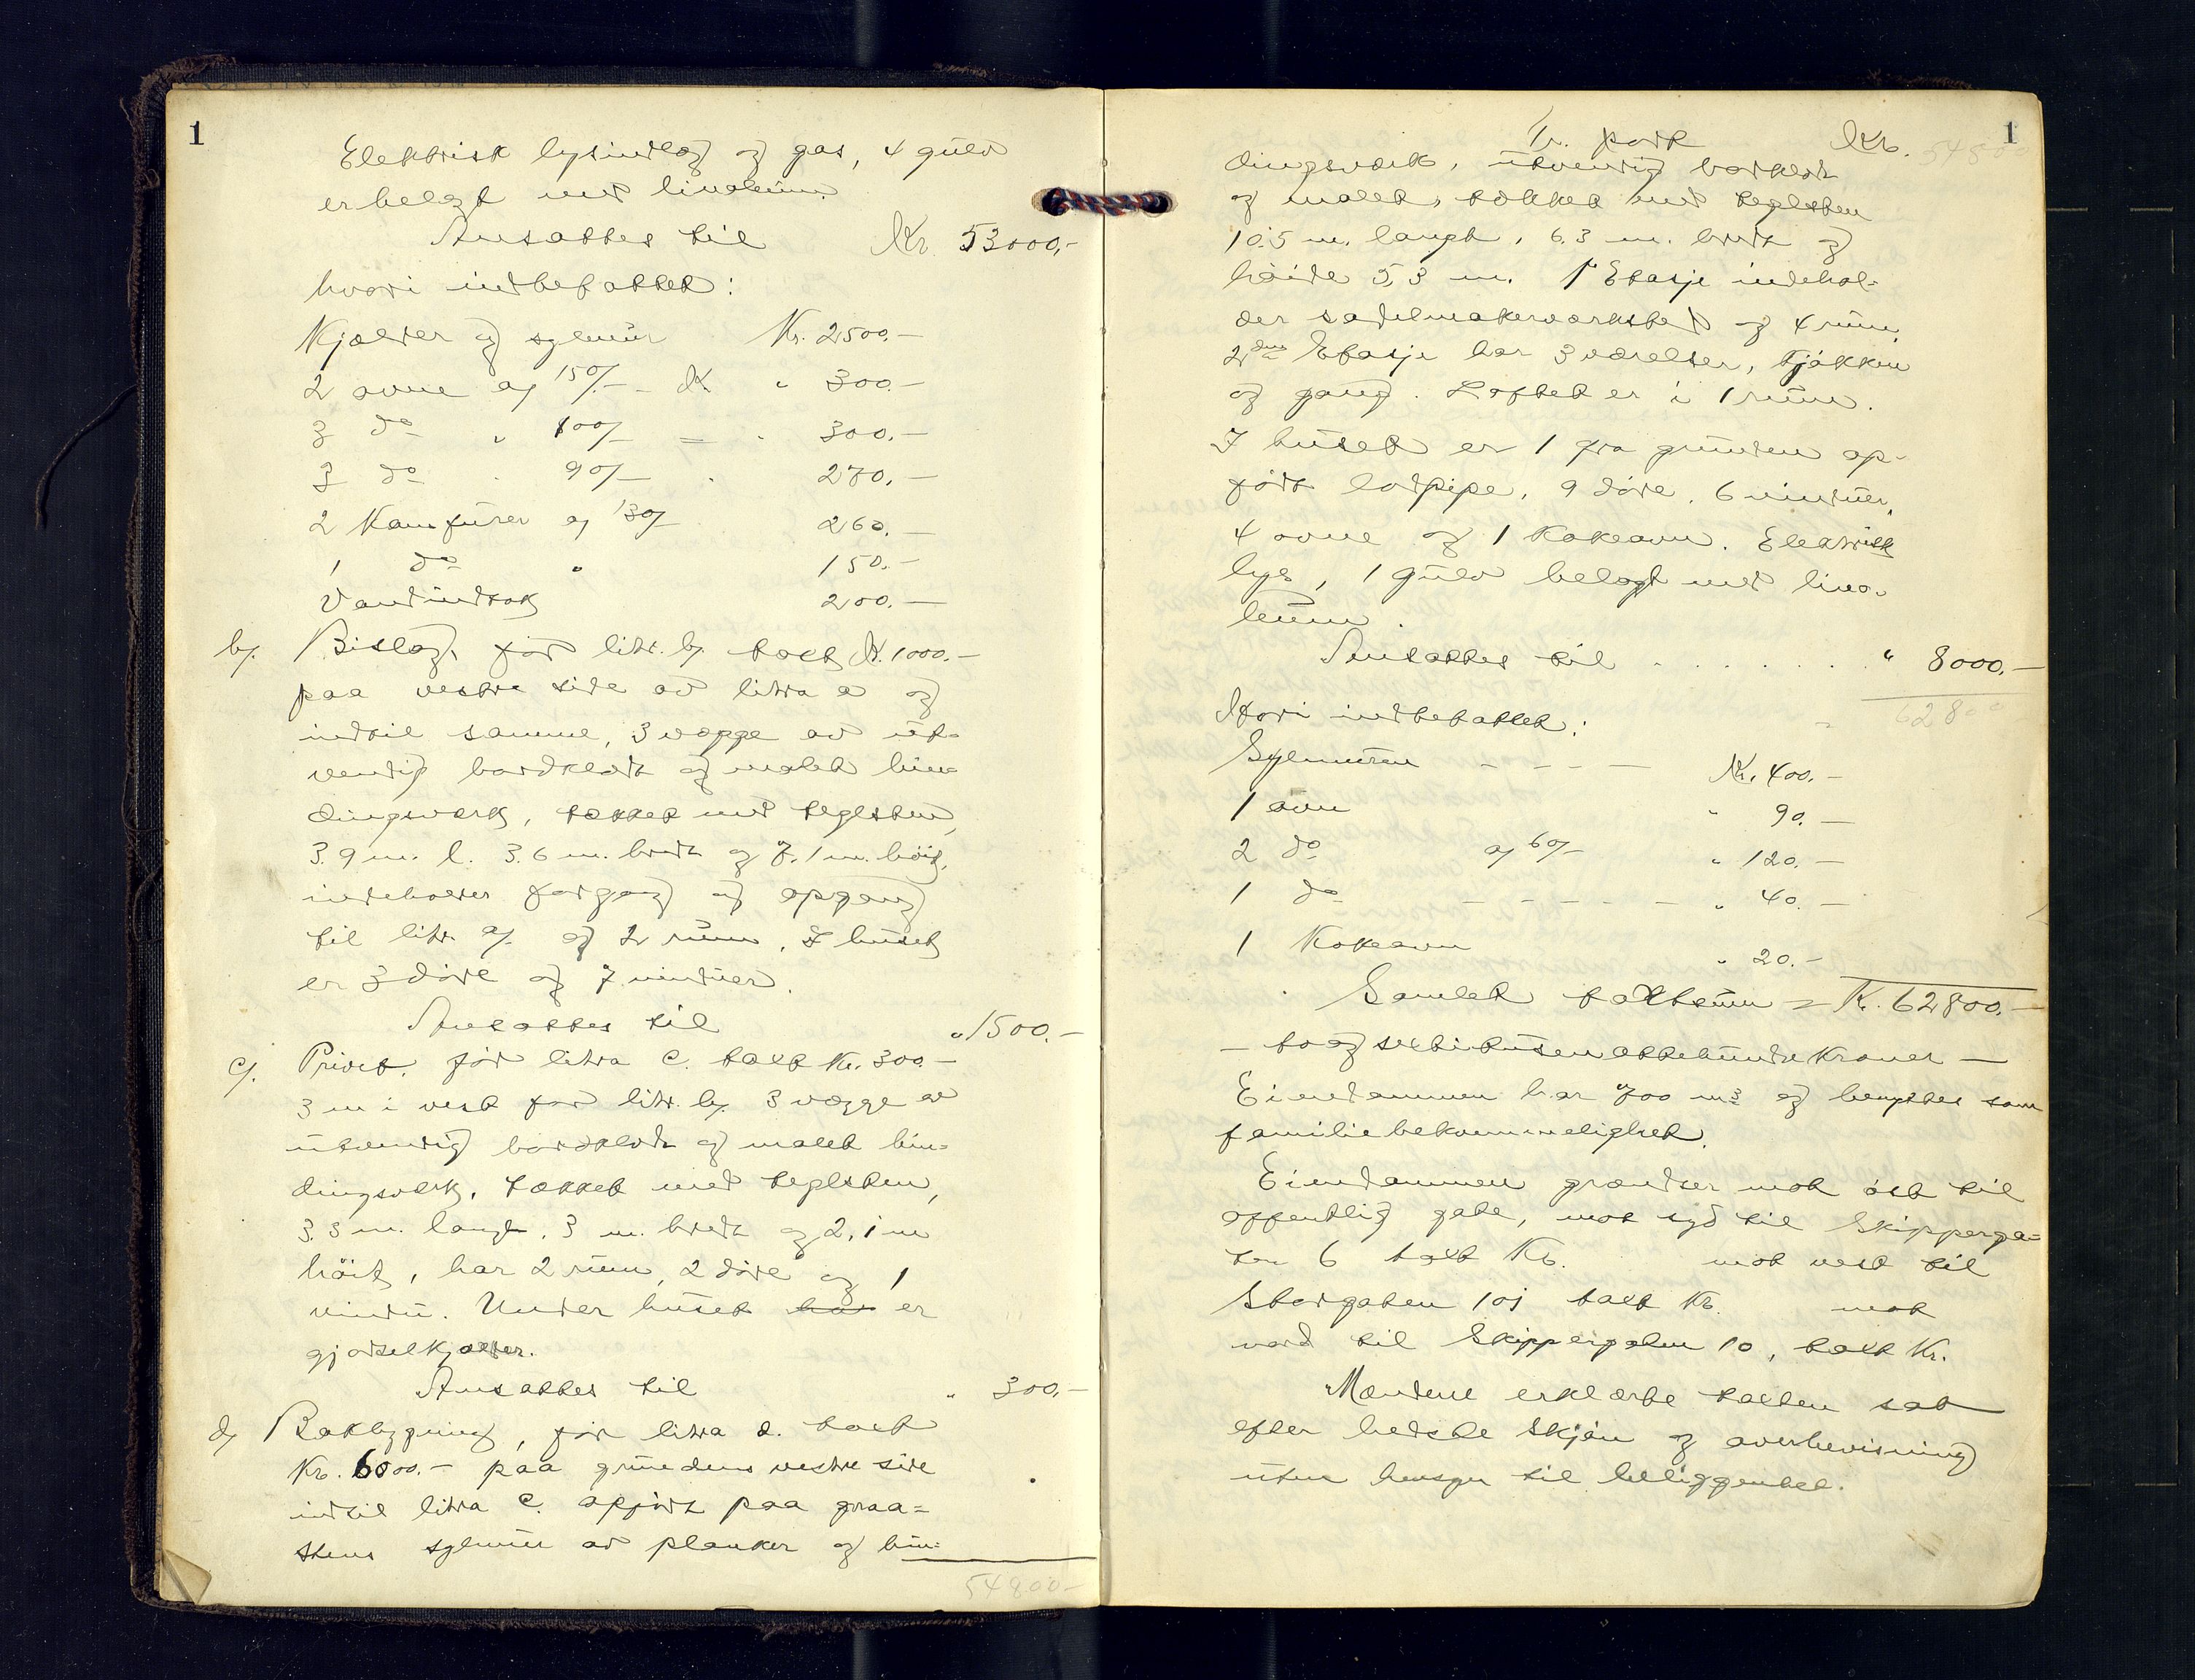 1
Elektrisk lysindlæg og gas, 4 gulv
er belagt med linoleum.
Ansættes til Kr. 53000,-
hvori indbefattet:
Kjælder og sylmur Kr. 2500.-
2 ovne à 150/- Kr. " 300.-
3 do " 100/- = " 300.-
3 do " 90/- " 270.-
2 Kamfurer à 130/- 260.-
1 do " 150.-
Vandindtak 200.-
b/. Bislag, før litr. b/. takst Kr. 1000.-
paa vestre side av litra a og
indtil samme, 3 vægge av ut-
vendig bordklædt og malet bin-
dingsverk, tækket med teglsten,
3.9 m. l. 3.6 m. bredt og 7.1 m. høit,
indeholder forgang og opgang
til litr a/. og 2 rum. I huset
er 3 døre og 7 vinduer.
Ansættes til " 1500.-
c/. Privet, før litra c. takst Kr. 300.-
3 m i vest for litr. b/. 3 vægge av
utvendig bordklædt og malet bin-
dingsverk, tækket med teglsten,
3.3 m. langt, 3 m. bredt og 2,1 m
høit, har 2 rum, 2 døre og 1
vindu. Under huset har er
gjødselkjælder.
Ansættes til " 300.-
d/ Bakbygning, før litra d. takst
Kr. 6000.- paa grundens vestre side
indtil litra c. opført paa graa-
stens sylmur av planker og bin-
54800-
1
Tr. port Kr. 5480
dingsverk, utvendig bordklædt
og malet, tækket med teglsten
10.5 m. langt, 6.3 m. bredt og
høide 5,3 m. 1ste Etasje indehol-
der sadelmakerverksted og 4 rum,
2den Etasje har 3 værelser, kjøkken
og gang. Loftet er i 1 rum.
I huset er 1 fra grunden op-
ført lodpipe, 9 døre, 6 vinduer,
4 ovne og 1 kokeovn. Elektrisk
lys, 1 gulv belagt med lino-
leum.
Ansættes til . . . . . . " 8000.-
62800
Hvori indbefattet:
Sylmuren - - - - Kr. 400.-
1 ovn " 90.-
2 do à 60/- " 120.-
1 do - - - - - " 40.-
1 Kokeovn " 20.-
Samlet takstsum = Kr. 62800.-
- to og sextitusenattehundre Kroner -
Eiendommen har 700 m2 og benyttes som
familiebekvemmelighet.
Eiendommen grændser mot øst til
offentlig gate, mot syd til Skipperga-
ten 6 takst Kr. mot vest til
Storgaten 101 takst Kr. mot
nord til Skippergaten 10, takst Kr.
Mændene erklærte taksten sat
efter bedste skjøn og overbevisning
uten hensyn til beliggenhet.